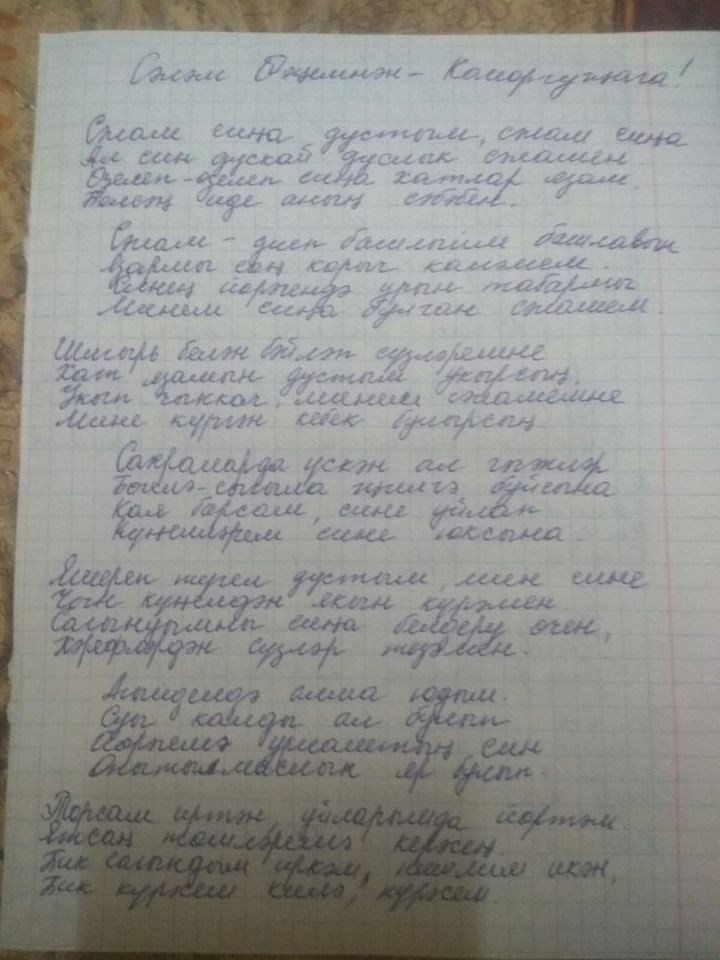 Сәләм Өҗемнән - Коморгуҗага!
Сәлам сиңа дустым, сәлам сиңа
Ал син дускай дуслык сәламен.
Өзелеп-өзелеп сиңа хатлар язам,
Белсәң иде аның сәбәбен.
Сәлам - диеп башлыйм башлавын
язармы соң корыч каләмем.
Синең йөрәгендә урын табармы
Минем сиңа булган сәламем.
Шигырь белән бәйләп сүзләремне
Хат язамын дустым укырсың,
Укып чыккач, минем сәламемне
Мине күргән кебек булырсың
Сахраларда үскән ал гөлләр
Бөгелә-сыгыла җилгә буйсына
Кая барсам, сине уйлап
Күңелләрем сине юксына.
Яшереп түгел дустым, мин сине
Чын күңелдән якын күрәмен.
Сагынуымны сиңа белдерү өчен,
Хәрефләрдән сүзләр тезәмен.
Агыйделдә алма юдым.
Суы калды ал булып
Йөрәгемә урнаштың син
Онытылмаслык яр булып.
Торсам иртән уйларымда йөртәм
Ятсаң төшләремә керәсең
Бик сагындым иркәм, икән,
Бик күрәсем килә, күрәсем.